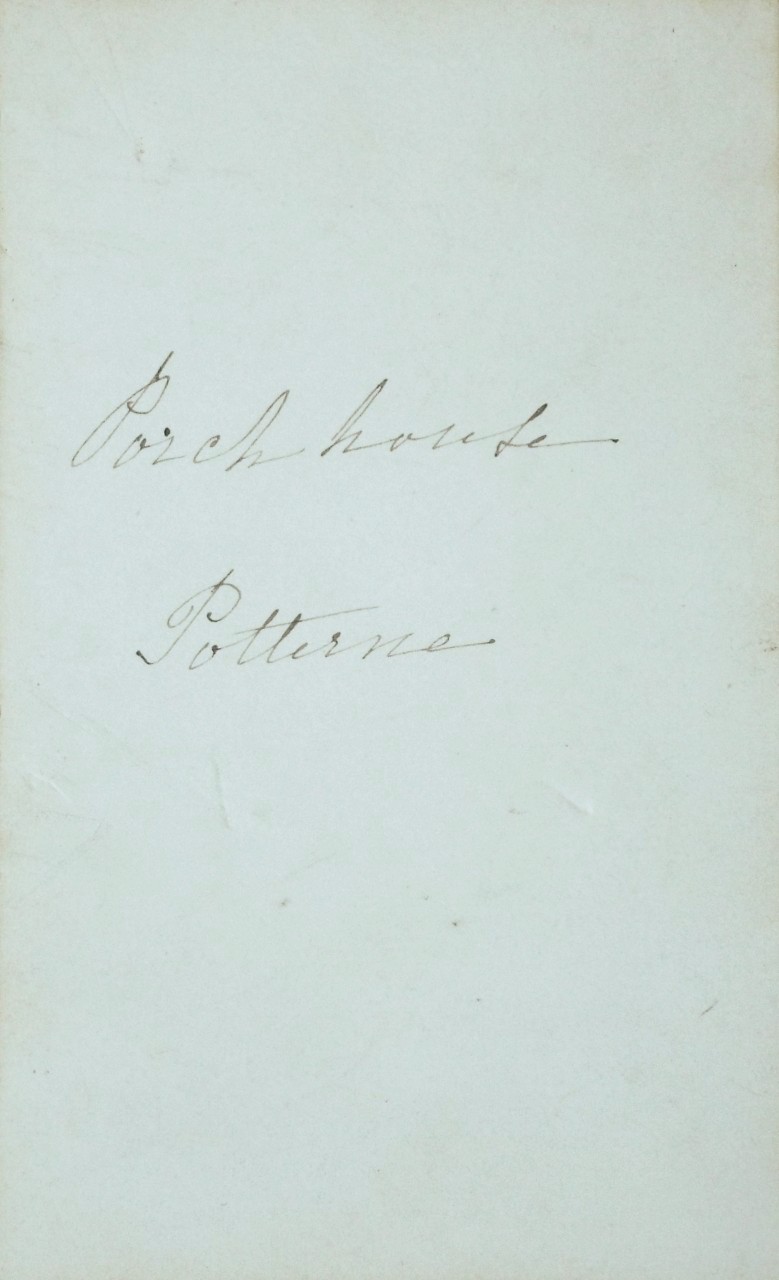 Porch house
Potterne